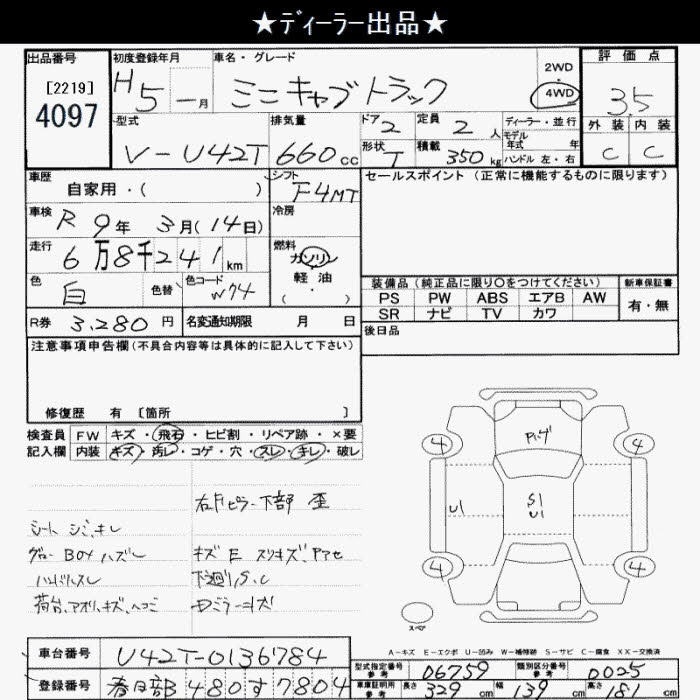 ★ディーラー出品★
出品番号
[2219]
4097
初度登録年月
H5 - 月
車名・グレード
ミニキャブトラック
2WD
・
4WD
評価点
3.5
外装 内装
C C
型式
V-U42T
排気量
660 cc
ドア 2
定員 2 人
ディーラー・並行
モデル年式 年
形状 T
積載 350 kg
ハンドル 左・右
車歴
自家用・( )
シフト
F4MT
セールスポイント(正常に機能するものに限ります)
車検 R 9年 3月(14日)
冷房
走行 6万8千241km
燃料
ガソリン
軽油
( ・ )
色 白
色替
色コード W74
装備品(純正品に限り○をつけてください)
PS PW ABS エアB AW
SR ナビ TV カワ
新車保証書
有・無
R券 3,280 円
名変通知期限 月 日
後日品
注意事項申告欄(不具合内容等は具体的に記入して下さい)
修復歴 有 [箇所 ]
検査員 FW キズ・飛石・ヒビ割・リペア跡・×要
記入欄 内装 キズ・汚レ・コゲ・穴・スレ・キレ・破レ
右Fピラー下部 歪
シート シミ、キレ
グローBOXハズレ
ハンドルスレ
荷台、アオリ、キズ、ヘコミ
キズ E スリキズ、アアセ
下廻りS.C
Dミラーキズ
Pハゲ
4
4
U1
S1
U1
4
4
スペア
A-キズ E-エクボ U-凹み W-補修跡 S-サビ C-腐食 XX-交換済
車台番号 U42T-0136784
登録番号 春日部480す7804
型式指定番号 参考 06759
類別区分番号 参考 0025
車庫証明用 参考 長さ 329 cm 幅 139 cm 高さ 181 cm